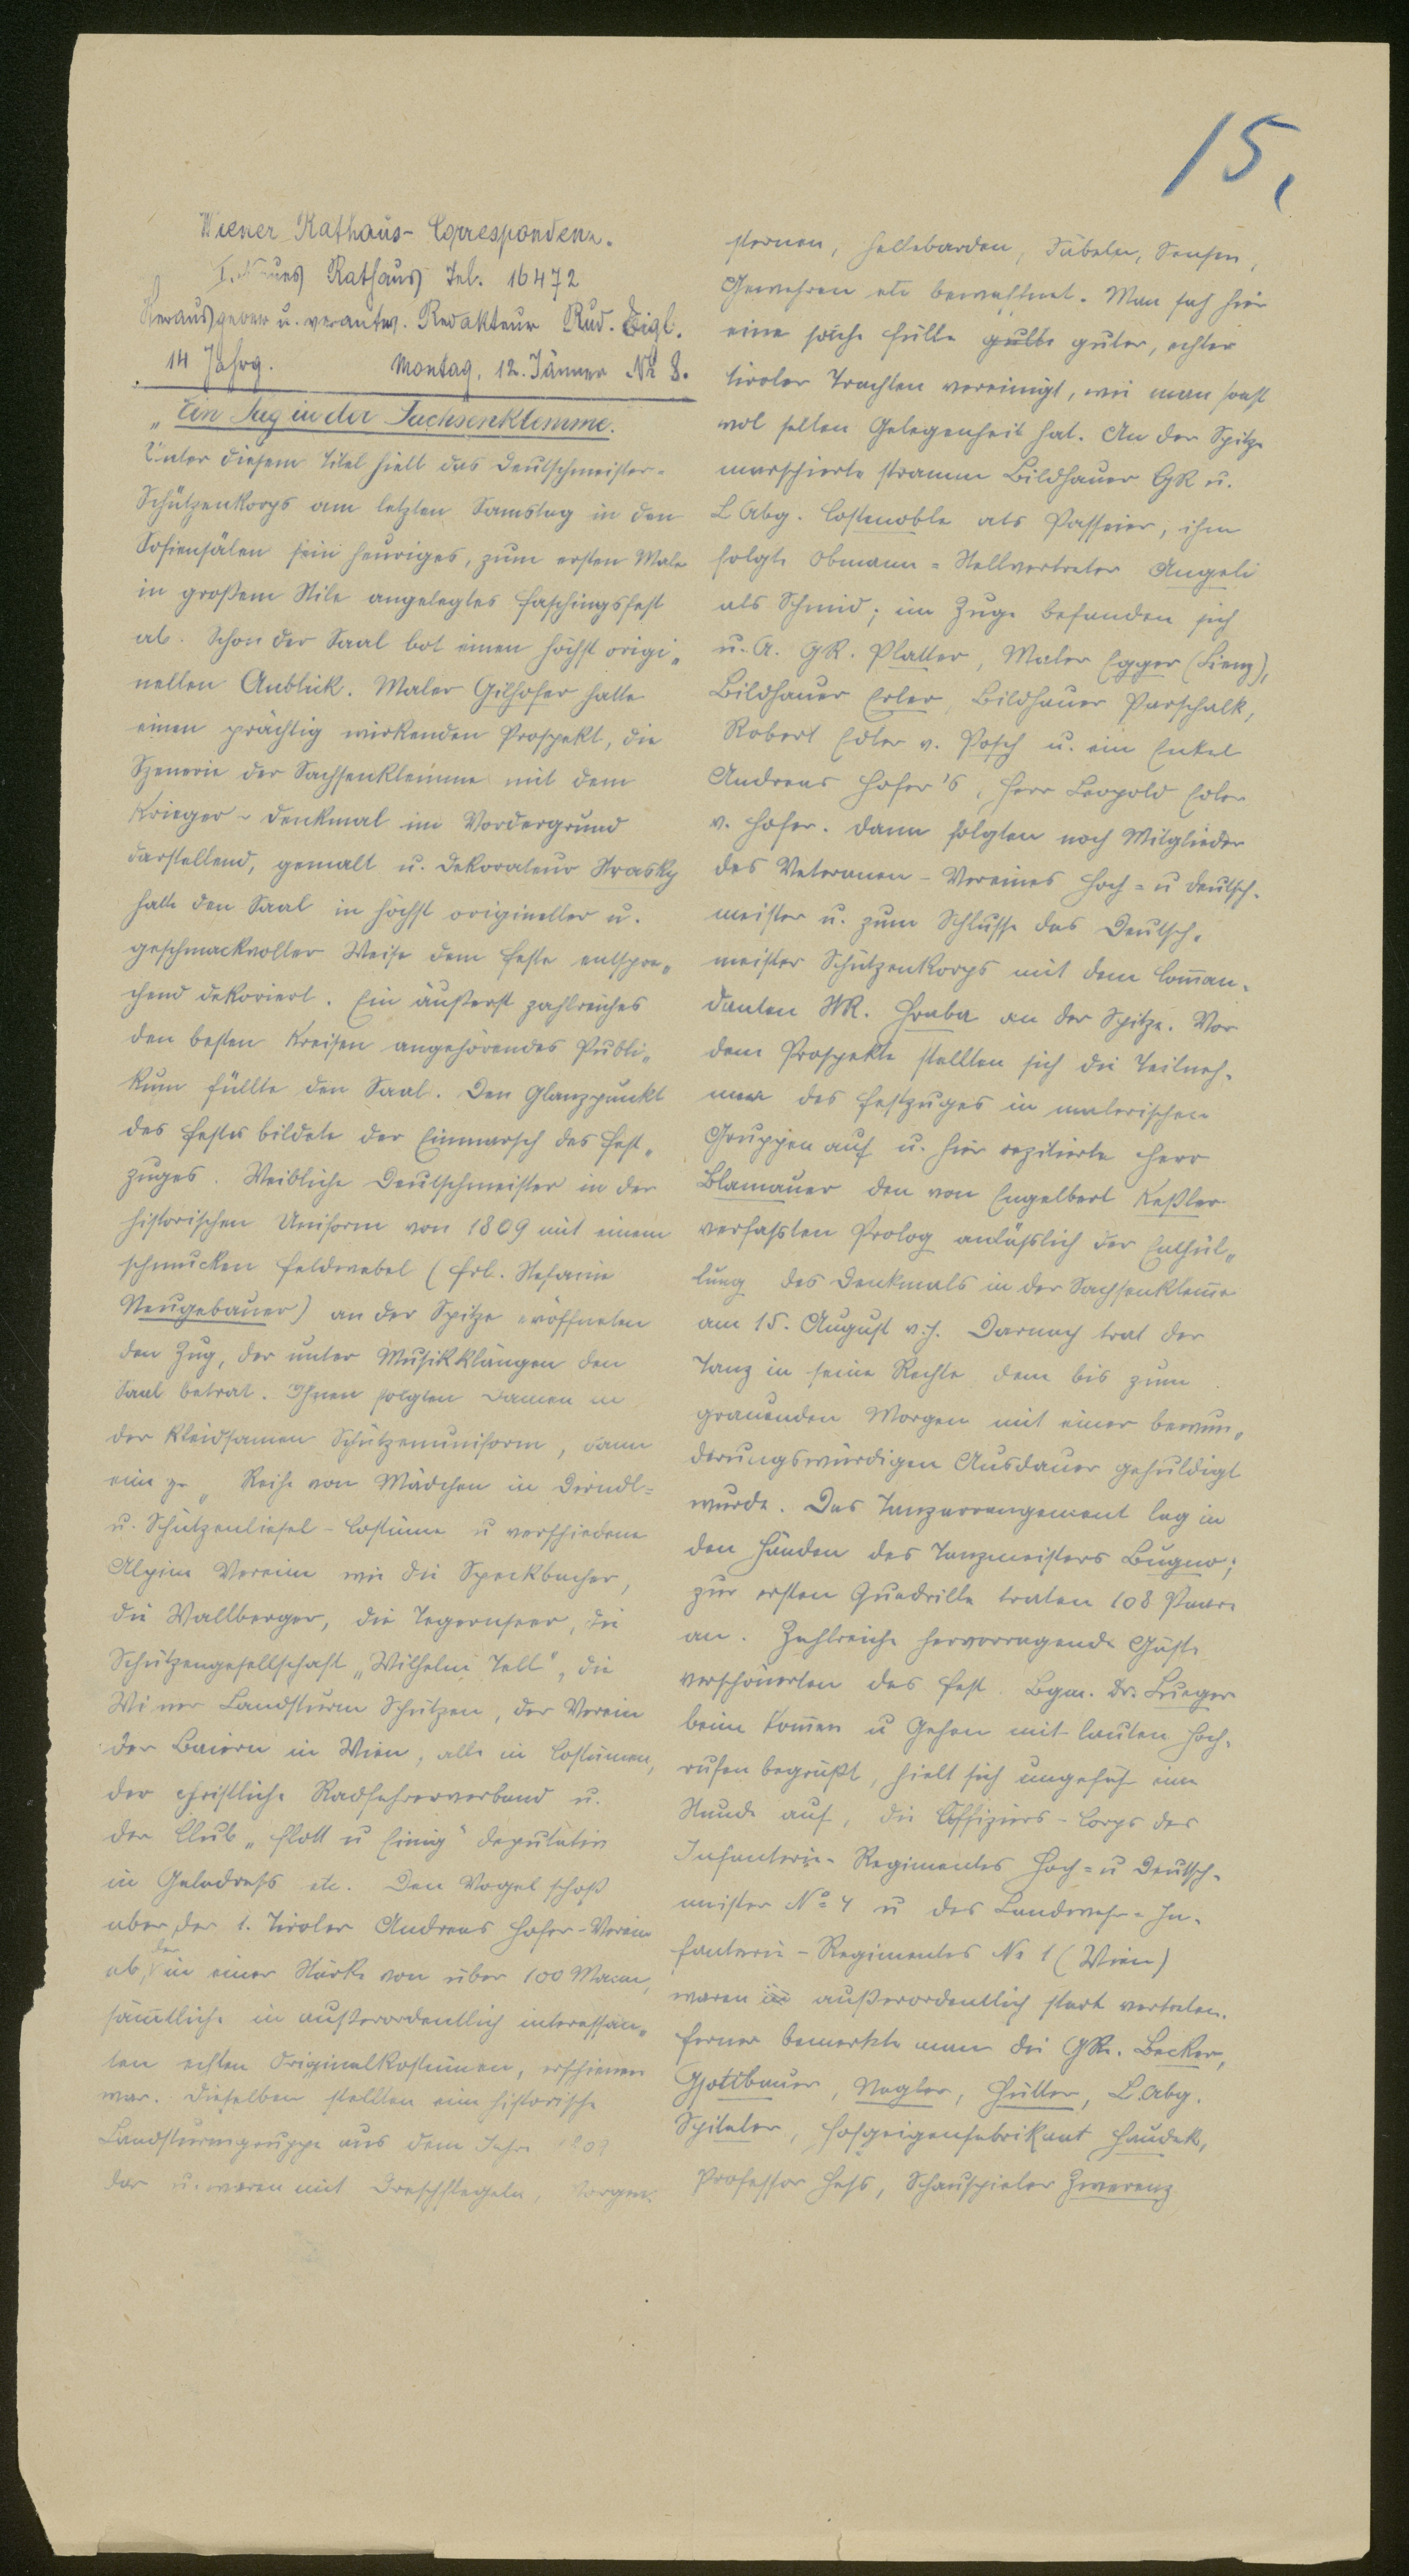 15.
Wiener Rathaus-Correspondenz.
I. Neues Rathaus Tel. 16472
Herausgeber u. verantw. Redakteur Rud. Eigl.
14 Jahrg. Montag, 12. Jänner Nr 8.
„Ein Tag in der Sachsenklemme.
Unter diesem Titel hielt das Deutschmeister-
Schützenkorps am letzten Samstag in den
Sofiensälen sein heuriges, zum ersten Male
in großem Stile angelegtes Faschingsfest
ab. Schon der Saal bot einen höchst origi„
nellen Anblick. Maler Gilhofer hatte
einen prächtig wirkenden Prospekt, die
Szenerie der Sachsenklemme mit dem
Krieger-Denkmal im Vordergrund
darstellend, gemalt u. Dekorateur Strasky
hatte den Saal in höchst origineller u.
geschmackvoller Weise dem Feste entspre„
chend dekoriert. Ein äußerst zahlreiches
den besten Kreisen angehörendes Publi„
kum füllte den Saal. Den Glanzpunkt
des Festes bildete der Einmarsch des Fest„
zuges. Weibliche Deutschmeister in der
historischen Uniform von 1809 mit einem
schmucken Feldwebel (Frl. Stefanie
Neugebauer) an der Spitze eröffneten
den Zug, der unter Musikklängen den
Saal betrat. Ihnen folgten Damen in
der kleidsamen Schützenuniform, dann
eine Reihe von Mädchen in Dirndl-
u. Schützenliesel-Costüme u verschiedene
Alpine Vereine wie die Speckbacher,
die Wallberger, die Tegernseer, die
Schützengesellschaft „Wilhelm Tell", die
Wiener Landsturm Schützen, der Verein
der Baiern in Wien, alle in Costümen,
der christliche Radfahrerverband u.
der Club „Flott u Einig" deputativ
in Galadreß etc. Den Vogel schoß
aber der 1. Tiroler Andreas Hofer-Verein
ab, der in einer Stärke von über 100 Mann,
sämtliche in außerordentlich interessan„
ten echten Originalkostümen, erschienen
war. Dieselben stellten eine historische
Landsturmgruppe aus dem Jahre 1809
dar u. waren mit Dreschflegeln, Morgen-
sternen, Hellebarden, Säbeln, Sensen,
Gewehren etc bewaffnet. Man sah hier
eine solche Fülle guter, echter
tiroler Trachten vereinigt, wie man sonst
wol selten Gelegenheit hat. An der Spitze
marschierte stramm Bildhauer GR u.
L Abg. Costenoble als Passeier, ihm
folgte Obmann-Stellvertreter Angeli
als Schmid; im Zuge befanden sich
u. A. GR. Platter, Maler Egger (Lienz),
Bildhauer Erler, Bildhauer Parschalk,
Robert Edler v. Posch u. ein Enkel
Andreas Hofer's, Herr Leopold Edler
v. Hofer. Dann folgten noch Mitglieder
des Veteranen-Vereines Hoch- u Deutsch-
meister u. zum Schlusse das Deutsch-
meister Schützenkorps mit dem Com̅an-
danten StR. Hraba an der Spitze. Vor
dem Prospekte stellten sich die Teilneh-
mer des Festzuges in malerischen
Gruppen auf u. hier rezitierte Herr
Blamauer den von Engelbert Keßler
verfaßten Prolog anläßlich der Enthül„
lung des Denkmals in der Sachsenklem̅e
am 15. August v. J. Darnach trat der
Tanz in seine Rechte, dem bis zum
grauenden Morgen mit einer bewun„
derungswürdigen Ausdauer gehuldigt
wurde. Das Tanzarrangement lag in
den Händen des Tanzmeisters Bugno;
zur ersten Quadrille traten 108 Paare
an. Zahlreiche hervorragende Gäste
verschönerten das Fest. Bgm. Dr. Lueger
beim Kom̅en u Gehen mit lauten Hoch-
rufen begrüßt, hielt sich ungefähr eine
Stunde auf, die Offiziers-Corps des
Infanterie-Regimentes Hoch- u Deutsch-
meister No 4 u des Landwehr-In-
fanterie-Regimentes No 1 (Wien)
waren außerordentlich stark vertreten.
Ferner bemerkte man die GRe. Becker,
Gottbauer, Nagler, Hütter, L.Abg.
Spitaler, Hofgeigenfabrikant Haudek,
Professor Heß, Schauspieler Zwerenz